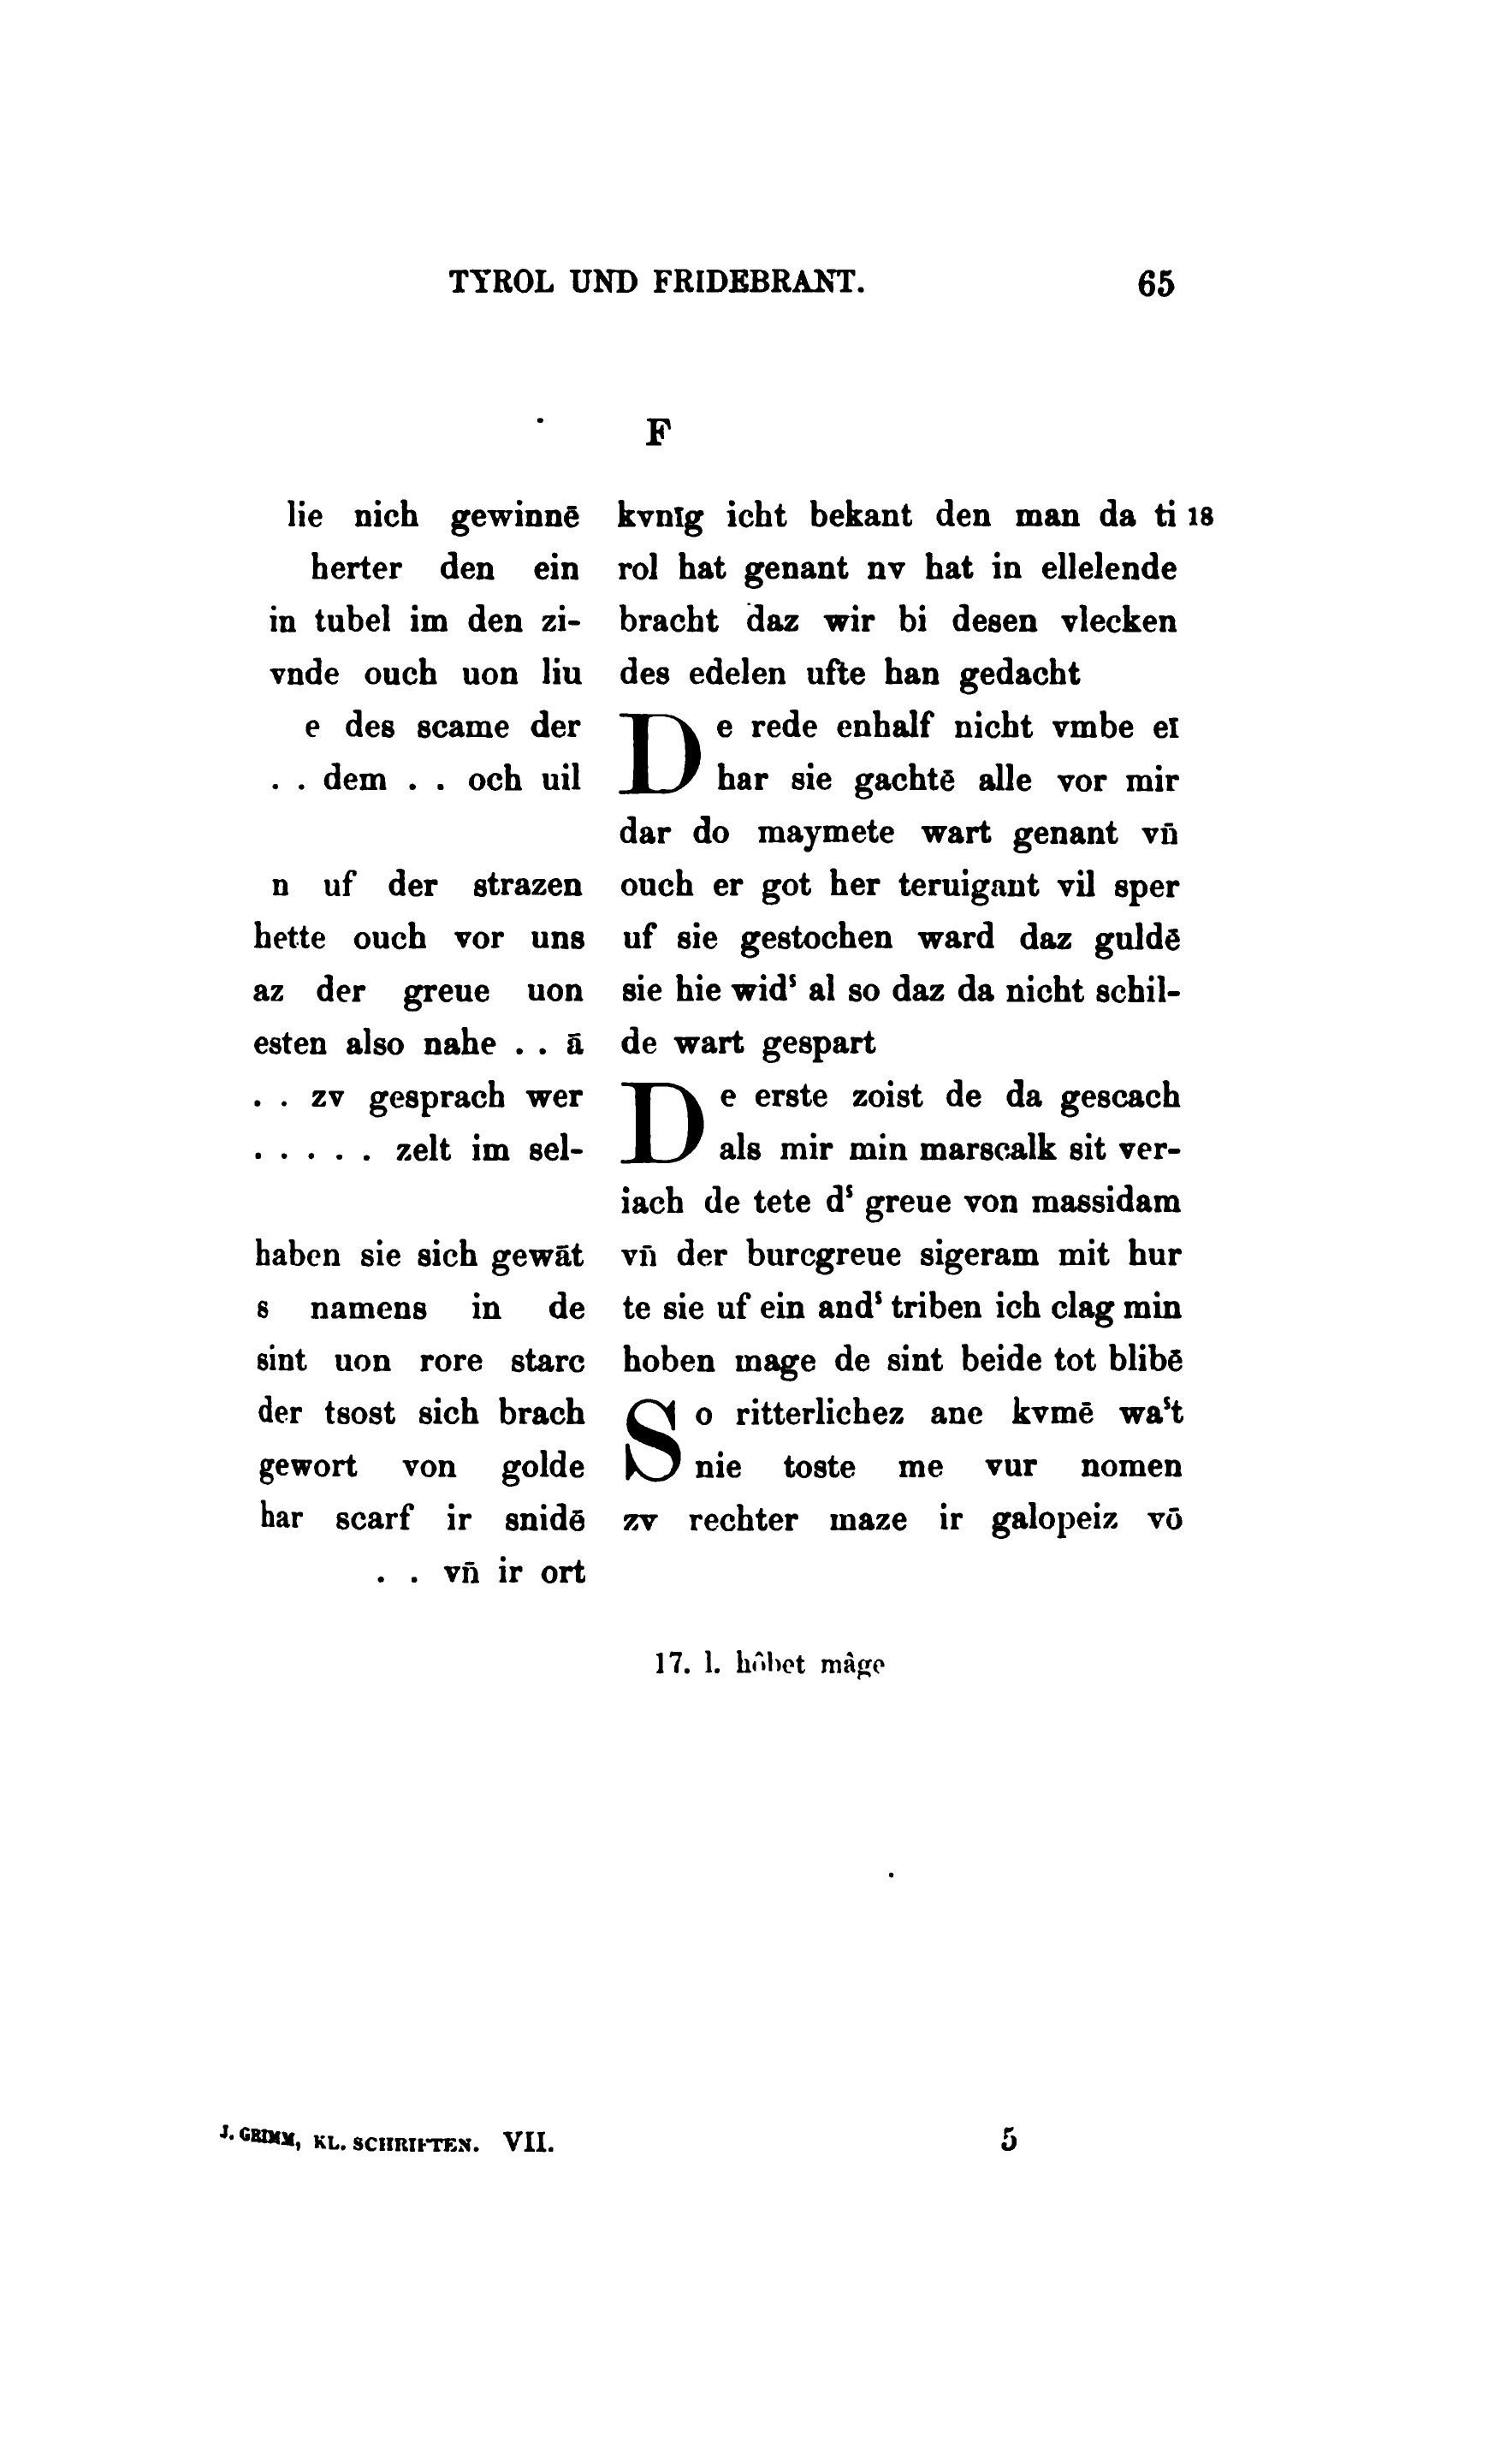 TYROL UND FRIDEBRANT. 65
F
lie nich gewinnē
herter den ein
in tubel im den zi-
vnde ouch uon liu
e des scame der
. . dem . . och uil
n uf der strazen
hette ouch vor uns
az der greue uon
esten also nahe . . ā
. . zv gesprach wer
. . . . . zelt im sel-
haben sie sich gewāt
s namens in de
sint uon rore starc
der tsost sich brach
gewort von golde
har scarf ir snidē
. . vn̄ ir ort
kvnīg icht bekant den man da ti 18
rol hat genant nv hat in ellelende
bracht daz wir bi desen vlecken
des edelen ufte han gedacht
De rede enhalf nicht vmbe eī
har sie gachtē alle vor mir
dar do maymete wart genant vn̄
ouch er got her teruigant vil sper
uf sie gestochen ward daz guldē
sie hie widˢ al so daz da nicht schil-
de wart gespart
De erste zoist de da gescach
als mir min marscalk sit ver-
iach de tete dˢ greue von massidam
vn̄ der burcgreue sigeram mit hur
te sie uf ein andˢ triben ich clag min
hoben mage de sint beide tot blibē
So ritterlichez ane kvmē waˢt
nie toste me vur nomen
zv rechter maze ir galopeiz vō
17. l. hôbet mâge
J. GRIMM, KL. SCHRIFTEN. VII. 5